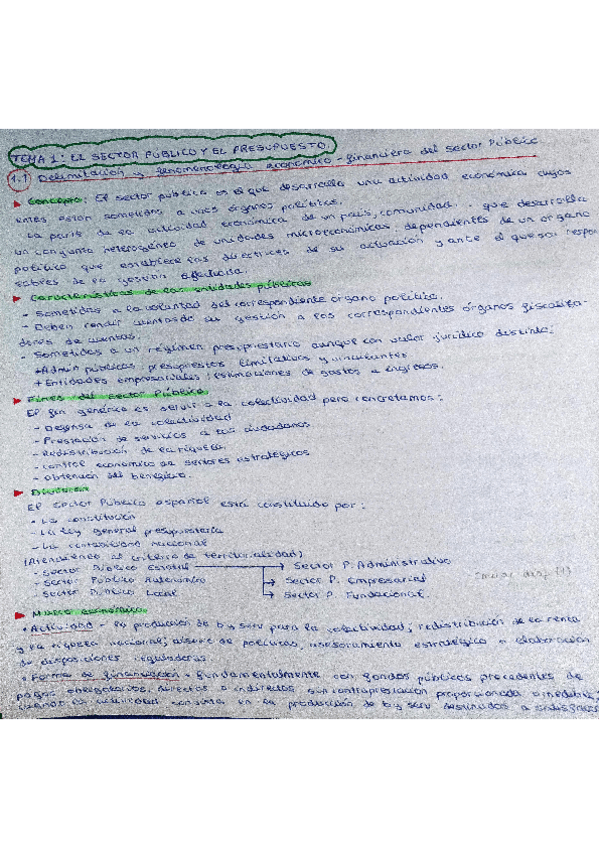 TEMA 1: EL SECTOR PÚBLICO Y EL PRESUPUESTO.
1.1 Delimitación y fenomenología económico-financiera del Sector Público
Concepto: El sector público es el que desarrolla una actividad económica cuyos
entes están sometidos a unos órganos políticos.
La parte de la actividad económica de un país, comunidad... que desarrolla
un conjunto heterogéneo de unidades microeconómicas; dependientes de un órgano
político que establece las directrices de su actuación y ante el que son respon
sables de la gestión
Características de las entidades públicas
- Sometidas a la voluntad del correspondiente órgano político.
- Deben rendir cuentas de su gestión a los correspondientes órganos fiscaliza-
dores de cuentas.
- Sometidas a un régimen presupuestario aunque con valor jurídico distinto:
+ Admin públicas: presupuestos limitativos y vinculantes
+ Entidades empresariales: estimaciones de gastos e ingresos.
Fines del sector Público
El fin genérico es servir a la colectividad pero concretamos:
- Defensa de la colectividad
- Prestación de servicios a los ciudadanos
- Redistribución de la riqueza
- Control económico de sectores estratégicos
- Obtención del beneficio.
División
El Sector Público español está constituido por:
• La constitución
- La ley general presupuestaria
- La contabilidad nacional
(Atendiendo al criterio de territorialidad)
- Sector Público Estatal → Sector P. Administrativo
- Sector Público Autonómico → Sector P. Empresarial
- Sector Público Local → Sector P. Fundacional.
Marco económico
• Actividad - la producción de b y serv para la colectividad; redistribución de la renta
y la riqueza nacional; asesoramiento estratégico o elaboración
de disposiciones reguladoras.
• Forma de financiación - fundamentalmente con fondos públicos procedentes de
pagos obligatorios, directos o indirectos sin contraprestación proporcionada
cuando la actividad consista en la producción de b y serv destinados a